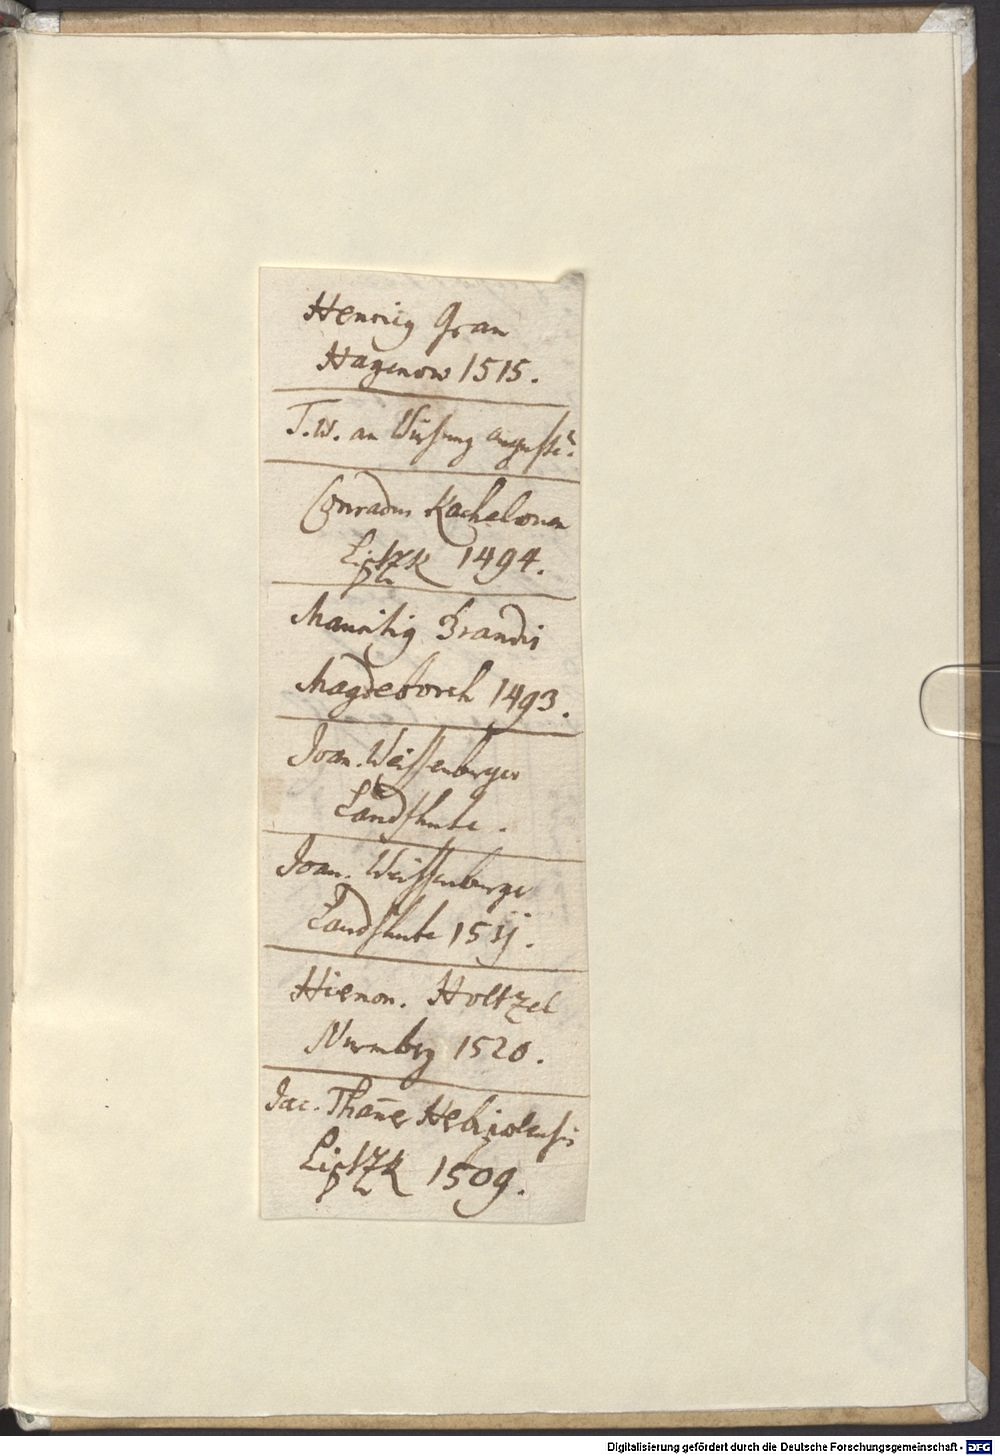 Henricus Gran
Hagenow 1515.
J. W. an Wirsung auguste.
Conradus Kachelouen
Liptzk 1494.
Mauritius Brandis
Magdeborch 1493.
Joan. Weissenburger
Landshute.
Joan. Weissenburger
Landshute 15ij.
Hieron. Holtzel
Nurmberg 1520.
Jac. Thāner Herbipolensis
Liptzk 1509.
Digitalisierung gefördert durch die Deutsche Forschungsgemeinschaft - DFG